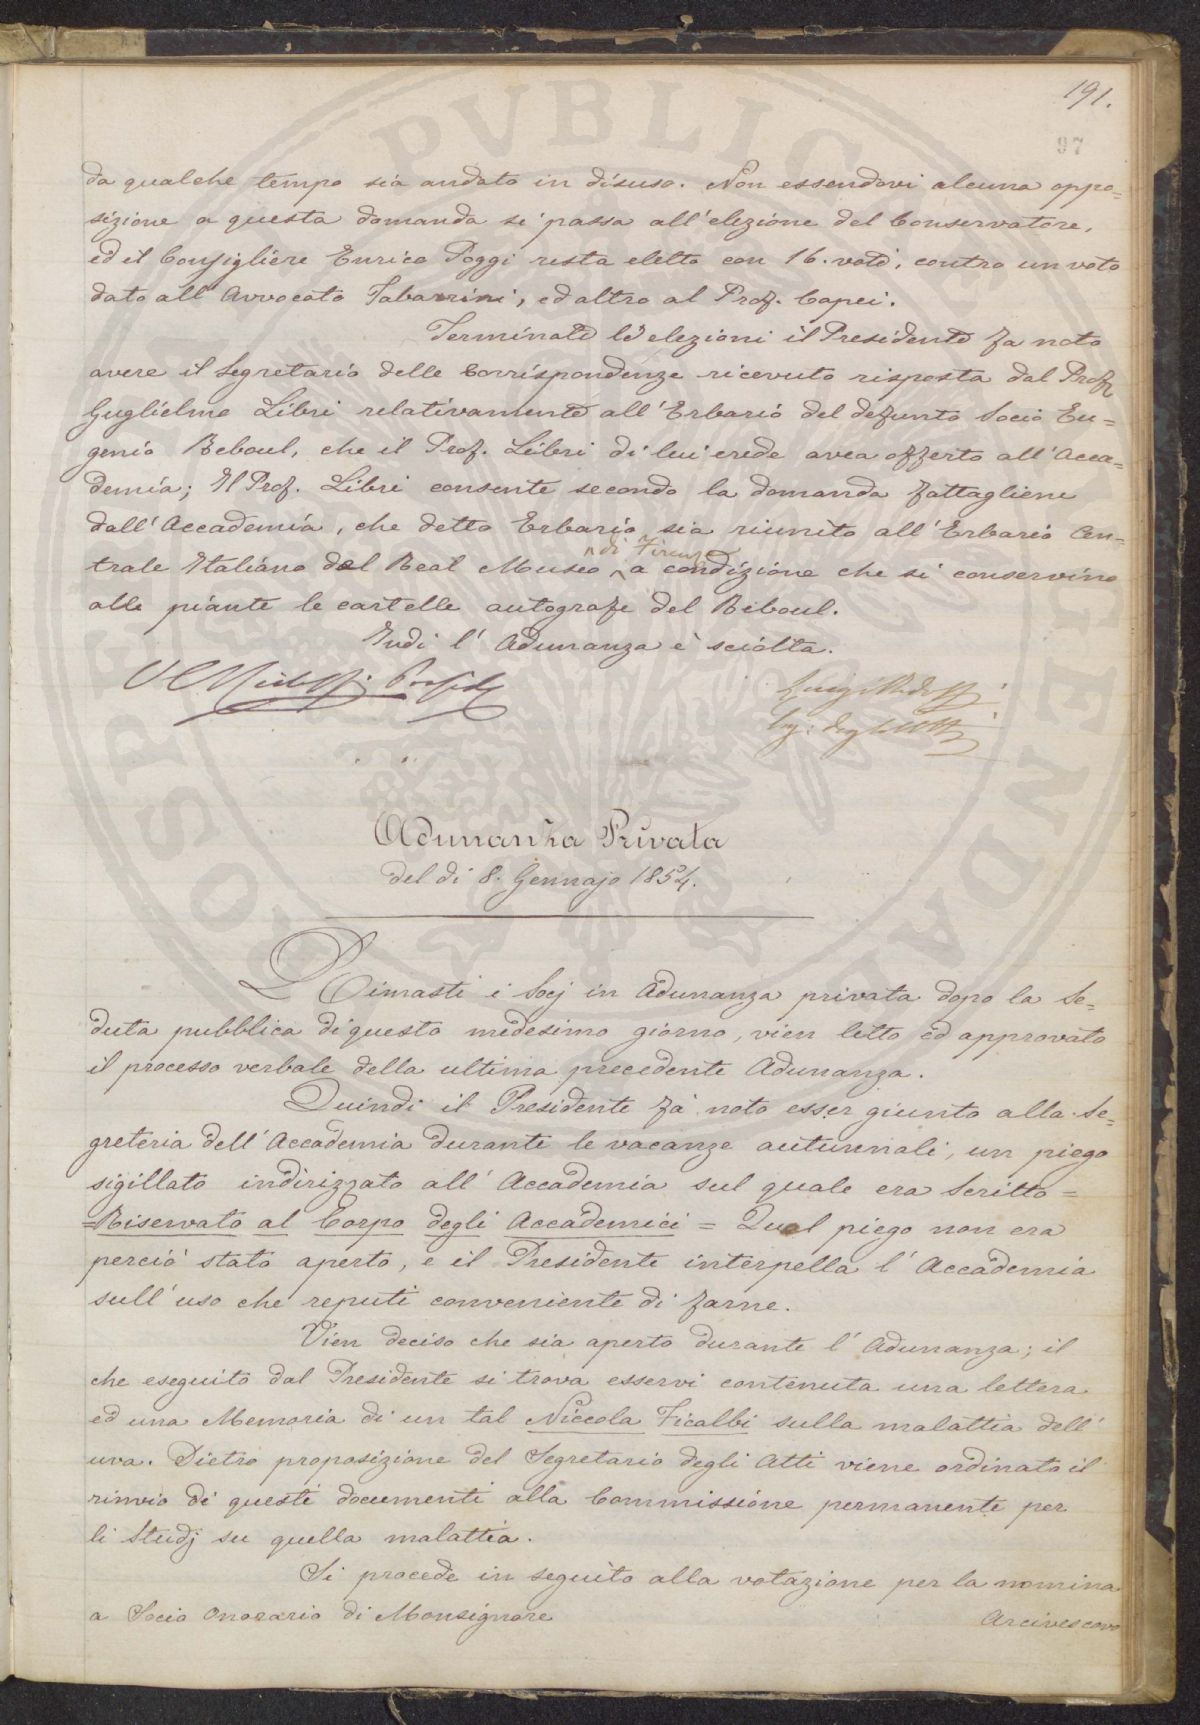 191.
97
da qualche tempo sia andato in disuso. Non essendovi alcuna oppo=
sizione a questa domanda si passa all'elezione del Conservatore,
ed il Consigliere Enrico Poggi resta eletto con 16. voti, contro un voto
dato all'Avvocato Tabarrini, ed altro al Prof. Capei.
Terminate le elezioni il Presidente fa noto
avere il Segretario delle Corrispondenze ricevuto risposta dal Prof.
Guglielmo Libri relativamente all'Erbario del defunto Socio Eu=
genio Reboul, che il Prof. Libri di lui erede avea offerto all'Acca=
demia; Il Prof. Libri consente secondo la domanda fattagliene
dall'Accademia, che detto Erbario sia riunito all'Erbario Cen=
di Firenze
trale Italiano del Real Museo a condizione che si conservino
alle piante le cartelle autografe del Reboul.
Indi l'Adunanza è sciolta.
Luigi Ridolfi
Seg: degli Atti
Adunanza Privata
del dì 8. Gennajo 1854.
Rimasti i Socj in Adunanza privata dopo la Se=
duta pubblica di questo medesimo giorno, vien letto ed approvato
il processo verbale della ultima precedente Adunanza.
Quindi il Presidente fa noto esser giunto alla Se=
greteria dell'Accademia durante le vacanze autunnali, un piego
sigillato indirizzato all'Accademia sul quale era scritto =
=Riservato al Corpo degli Accademici = Qual piego non era
perciò stato aperto, e il Presidente interpella l'Accademia
sull'uso che reputi conveniente di farne.
Vien deciso che sia aperto durante l'Adunanza; il
che eseguito dal Presidente si trova esservi contenuta una lettera
ed una Memoria di un tal Niccola Ficalbi sulla malattia dell'
uva. Dietro proposizione del Segretario degli Atti viene ordinato il
rinvio di questi documenti alla Commissione permanente per
li Studj su quella malattia.
Si procede in seguito alla votazione per la nomina
a Socio Onorario di Monsignore Arcivescovo